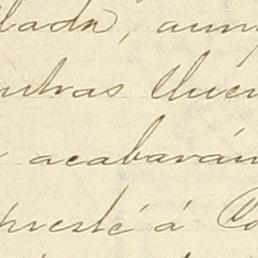 llada, aun
ntras lluev
acabarán
presté á Co